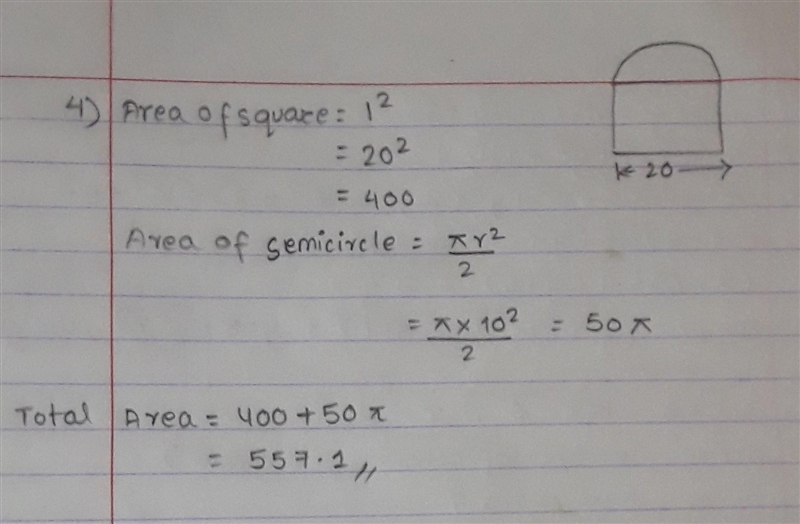 4) Area of square = l²
= 20²
= 400
20
Area of semicircle = πr²/2
= π × 10²/2 = 50π
Total Area = 400 + 50π
= 557.1